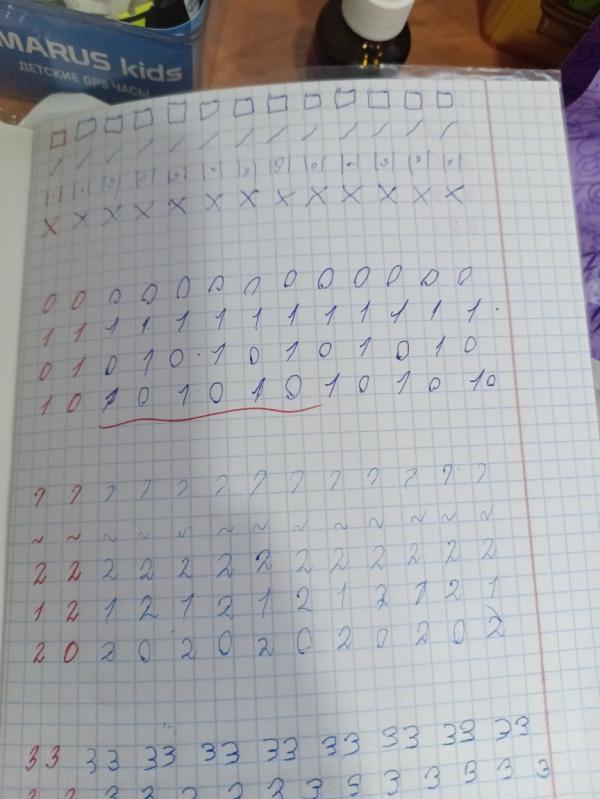 MARUS kids
ДЕТСКИЕ GPS ЧАСЫ
0 0 0 0 0 0 0 0 0 0 0 0 0
1 1 1 1 1 1 1 1 1 1 1 1 1
0 1 0 1 0 1 0 1 0 1 0 1 0
1 0 1 0 1 0 1 0 1 0 1 0 10
~ ~ ~ ~ ~ ~ ~ ~ ~ ~ ~ ~ ~
2 2 2 2 2 2 2 2 2 2 2 2 2
1 2 1 2 1 2 1 2 1 2 1 2 1
2 0 2 0 2 0 2 0 2 0 2 0 2
33 33 33 33 33 33 33 33 33